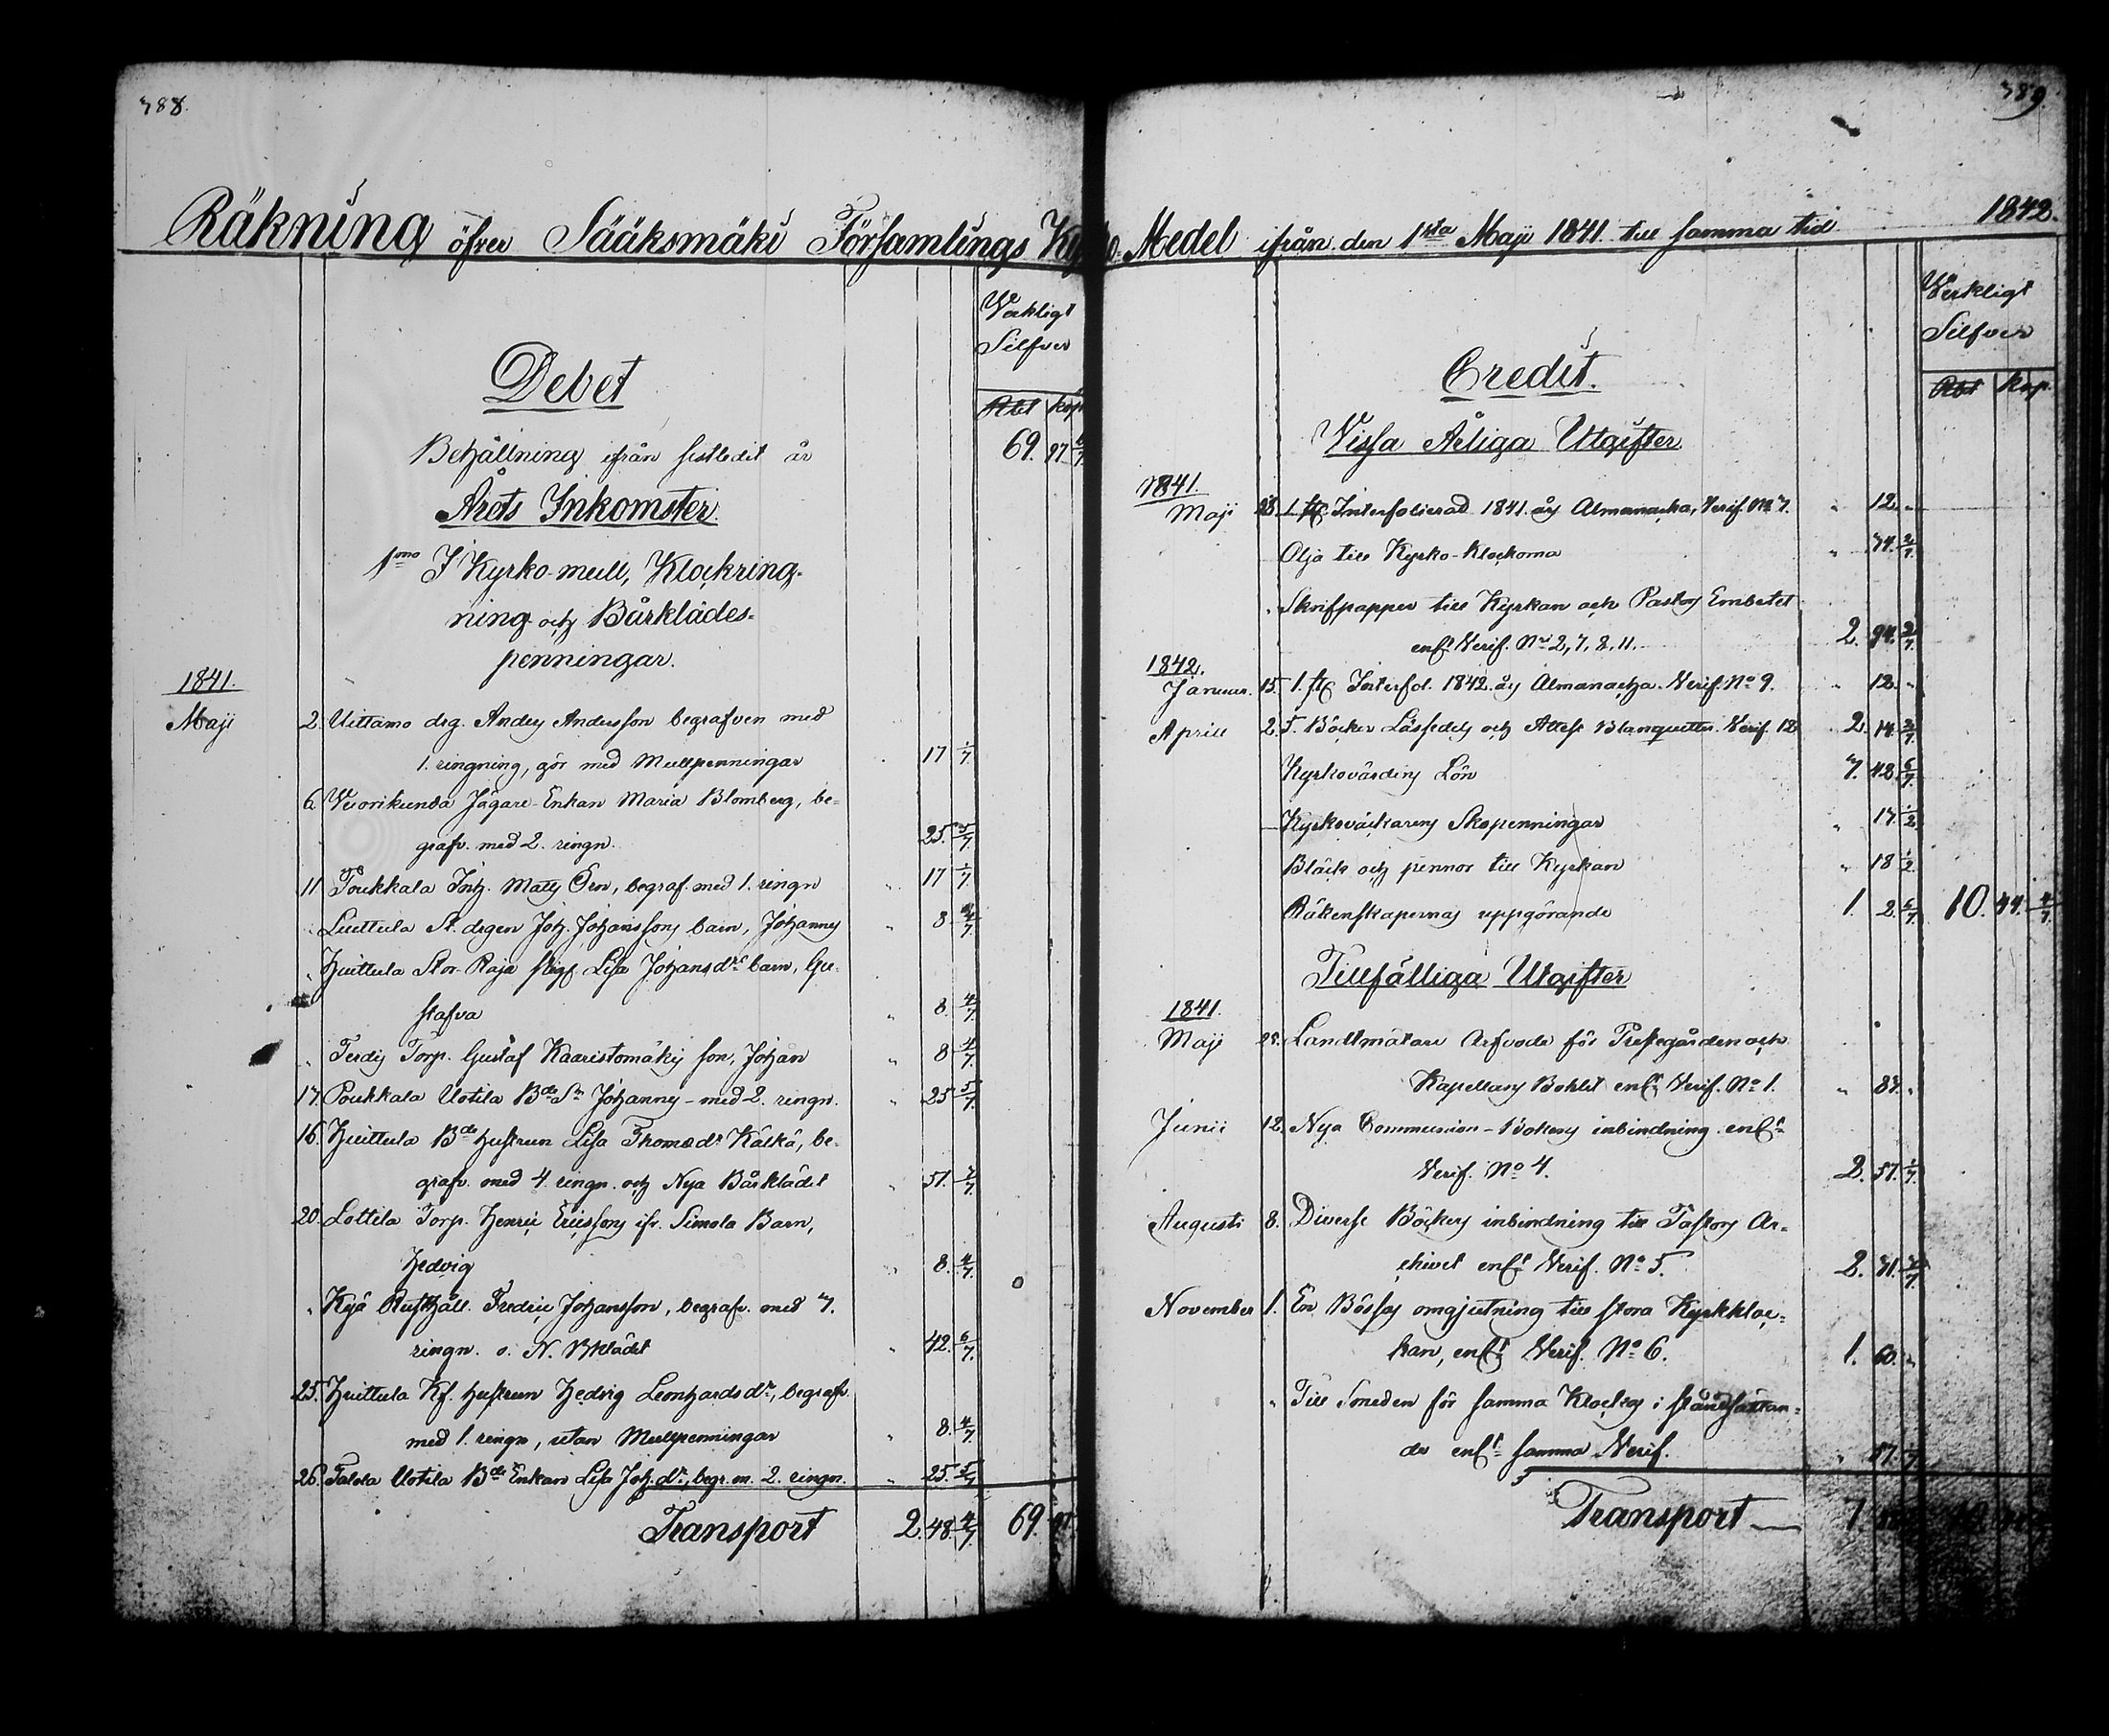 388.
Räkning öfver Sääksmäki Församlings Ky
Werkligt
Silfver
Debet
Rbl Kop
Behållning ifrån sistledit år 69. 97.
Årets Inkomster.
1mo I Kyrko-mull, Klockring-
ning och Bårklädes-
penningar.
1841.
Maji 2. Uittamo drg. Anders Andersson begrafven med
1. ringning, gör med Mullpenningar 17 1/7
6. Wuorikunda Jägare-Enkan Maria Blomberg, be-
grafv. med 2. ringn. 25. 5/7.
11 Poukkala Inh. Matts Örn, begraf. med 1. ringn " 17 1/7.
Luttula St. drgen Joh. Johanssons barn, Johannes " 8. 4/7.
" Huittula Stor-Raja pig. Lisa Johansdrs barn, Gu-
stafva " 8. 4/7.
" Ferdis Torp. Gustaf Kaaristomäkis son, Johan " 8 4/7.
17. Poukkala Uotila Bde Sn Johannes - med 2. ringn. " 25 5/7.
16. Huittula Bde hustrun Lisa Thomædr Kälkä, be-
grafv. med 4. ringn. och Nya Bårklädet " 51. 3/7.
20. Lottila Torp. Henric Ericssons ifr. Simola Barn,
Hedvig " 8. 4/7.
" Kyä Rusthåll. Fredric Johansson, begrafv. med 7.
ringn. o. N. Bklädet " 42. 6/7.
25. Huittula Kf. hustrun Hedvig Leonhardsdr, begrafv.
med 1. ringn, utan Mullpenningar " 8. 4/7.
26. Talola Uotila Bde Enkan Lisa Joh.dr, begr. m. 2. ringn. " 25. 5/7
Transport 2. 48. 4/7. 69. 97.
389.
o. Medel ifrån den 1sta Maji 1841. till samma tid 1842.
Werkligt
Silfver
Credit.
Rbl Kop.
Vissa Årliga Utgifter
1841.
Maji 1. st. Interfolierad 1841. års Almanacka, Verif. No 7. " 12. "
Olja till Kyrko-Klockorna " 34. 2/7
" Skrifpapper till Kyrkan och Pastors Embetet
enl. Verif. No 2, 7, 8, 11. 2. 94. 2/7.
1842.
Januar. 15. 1. st. Interfol. 1842. års Almanacka. Verif. No 9. " 12. "
Aprill 2. 5. Böcker Låssedels och Attest Blanquetter. Verif. 12 2. 14. 2/7.
Kyrkovärdens Lön 7. 42 6/7.
Kyrkoväckarens Skopenningar " 17. 1/2
Bläck och pennor till Kyrkan " 18 1/2
Räkenskapernas uppgörande 1. 2. 6/7. 10. 44. 4/7.
Tillfälliga Utgifter
1841.
Maji 28. Landtmätare Arfvode för Prestegården och
Kapellans Bohlet enl. Verif. No 1. " 87. "
Junii 12. Nya Communion-Bokens inbindning enl.
Verif. No 4. 2. 57. 1/7.
Augusti 8. Diverse Böckers inbindning till Pastors Ar-
chivet enl. Verif. No 5. 2. 31.
November 1. En Bössas omgjutning till stora Kyrkkloc-
kan, enl. Verif. No 6. 1. 60. "
" Till Smeden för samma Klockas i ståndsättan-
de enl. samma Verif. " 17.
Transport 7.